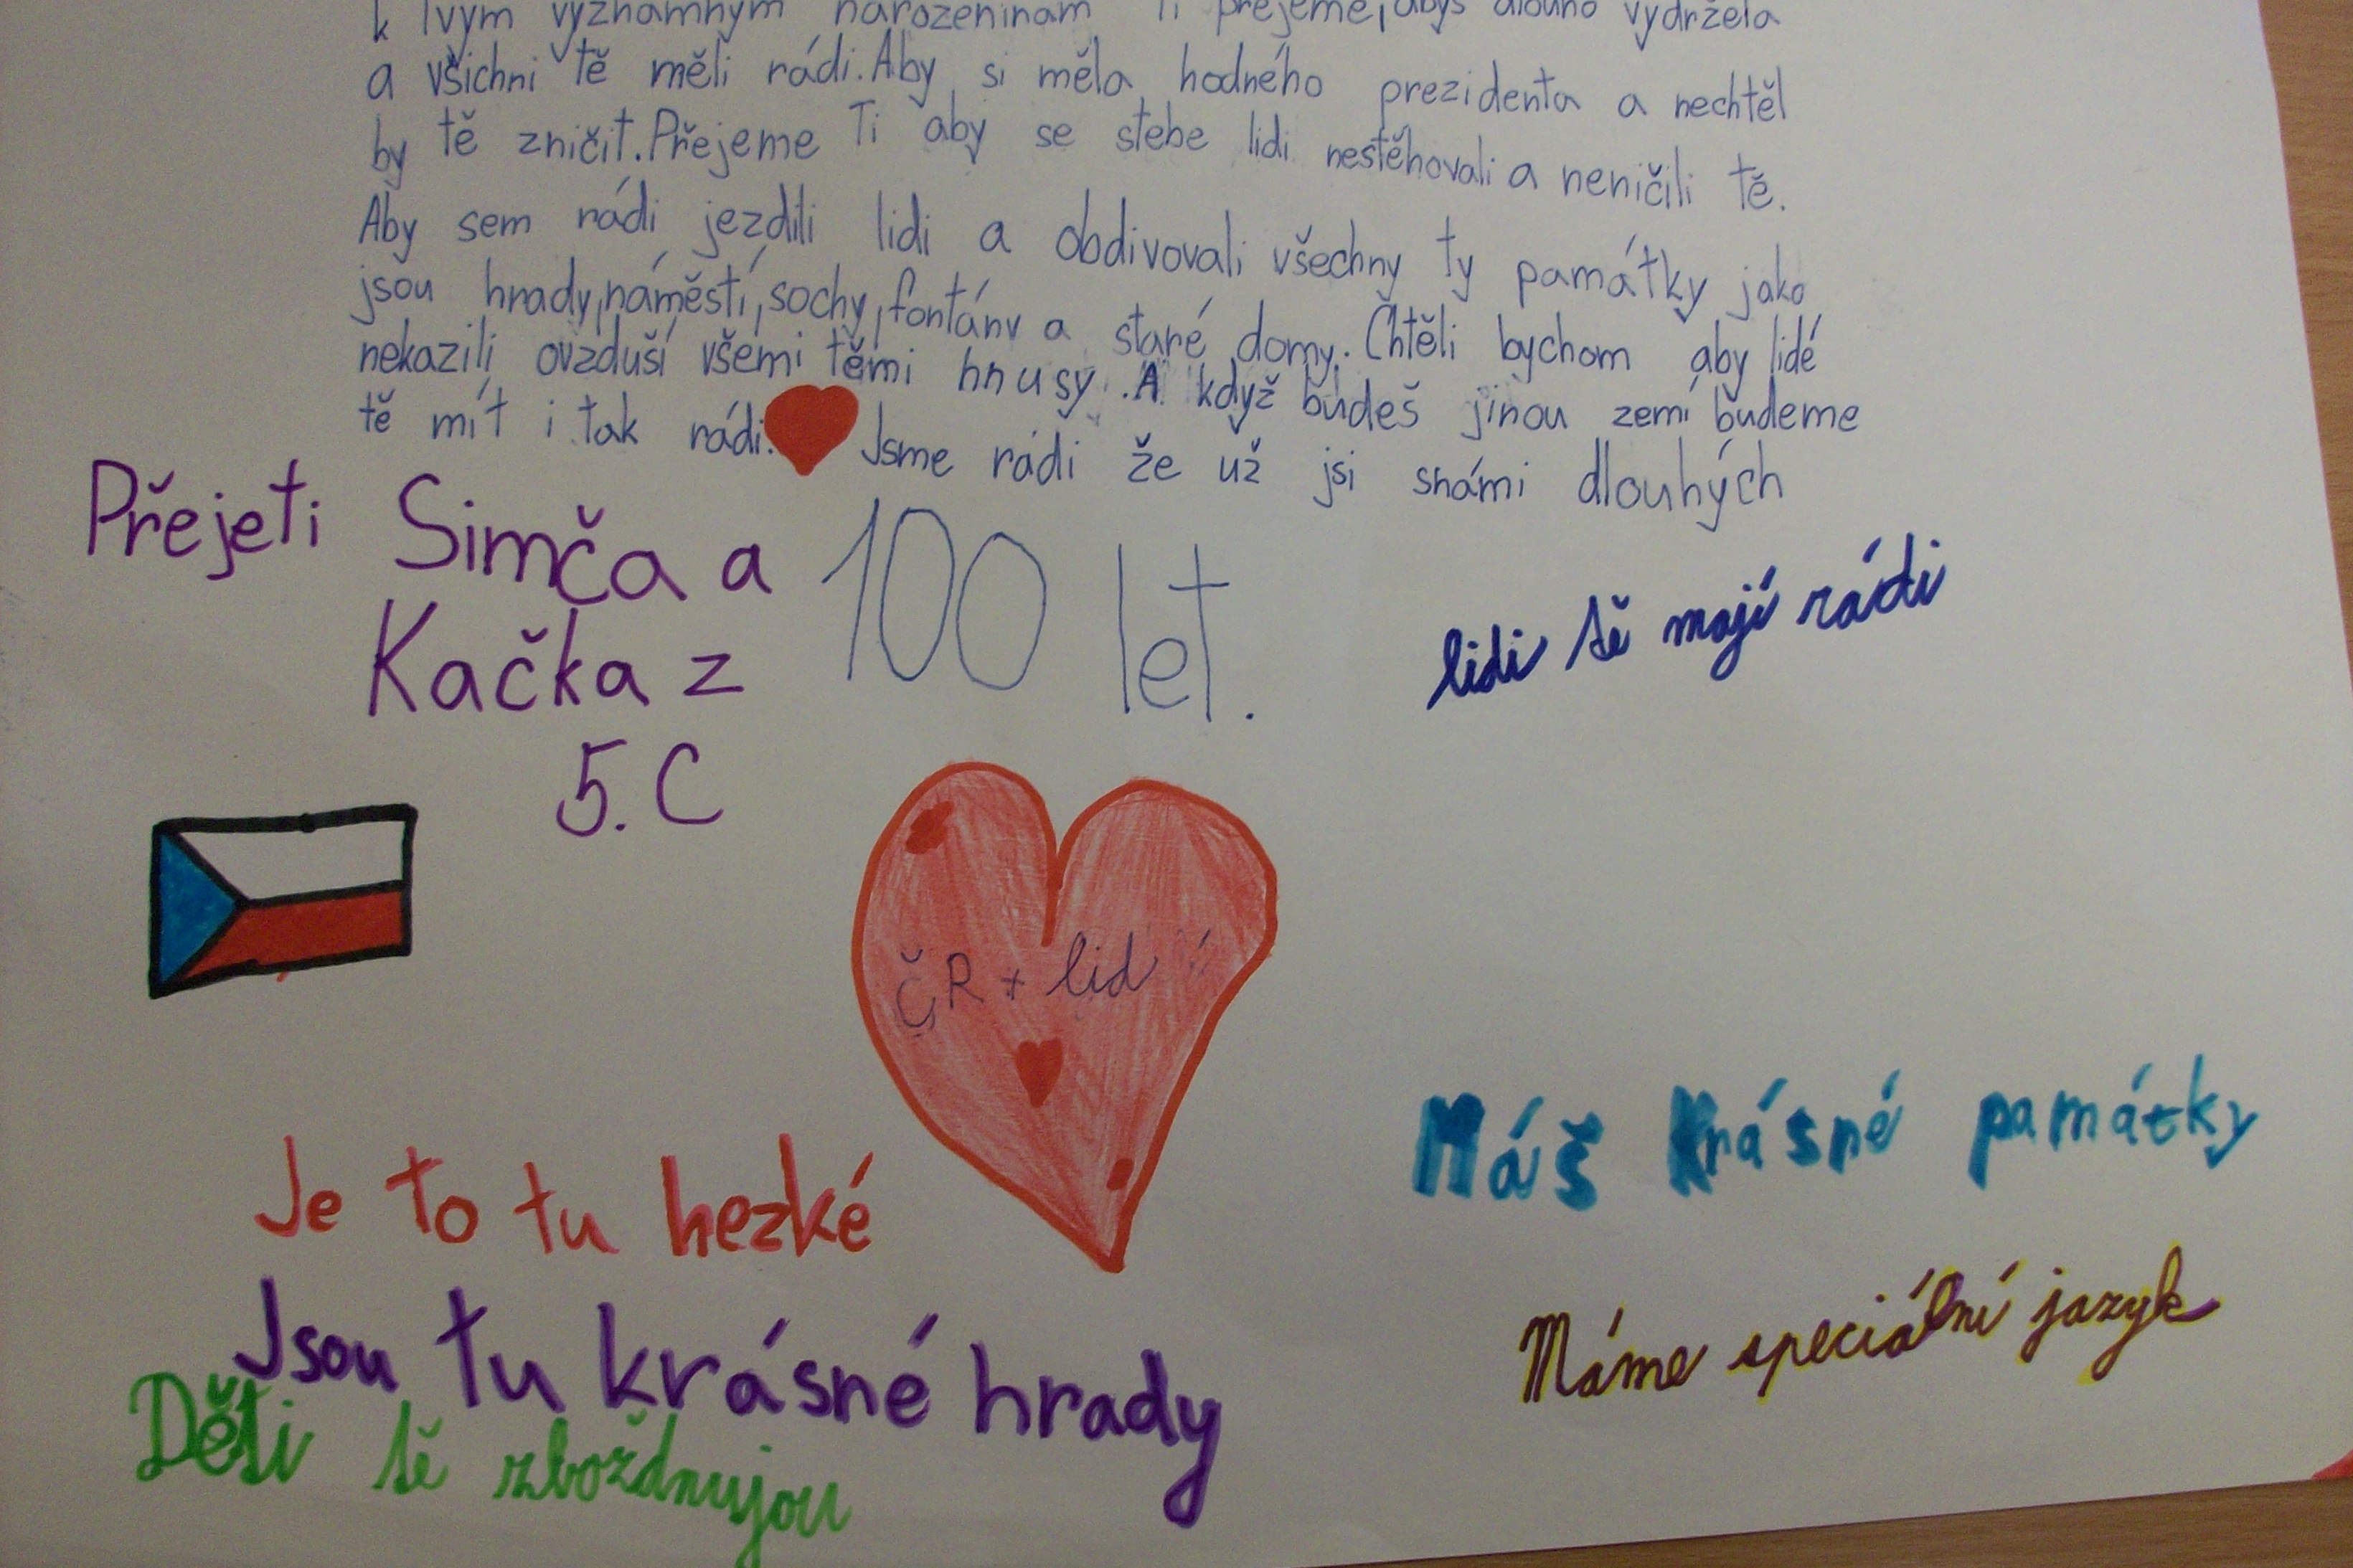 k Tvým významným narozeninám Ti přejeme, abys dlouho vydržela
a všichni tě měli rádi. Aby si měla hodného prezidenta a nechtěl
by tě zničit. Přejeme Ti aby se stebe lidi nestěhovali a neničili tě.
Aby sem rádi jezdili lidi a obdivovali všechny ty památky jako
jsou hrady, náměstí, sochy, fontány a staré domy. Chtěli bychom aby lidé
nekazili ovzduší všemi těmi hnusy. A když budeš jinou zemí budeme
tě mít i tak rádi. Jsme rádi že už jsi snámi dlouhých
100 let.
Přejeti Simča a
Kačka z
5. C
lidi tě mají rádi
ČR + lid
Máš krásné památky
Je to tu hezké
Máme speciální jazyk
Jsou tu krásné hrady
Děti tě zboždnujou